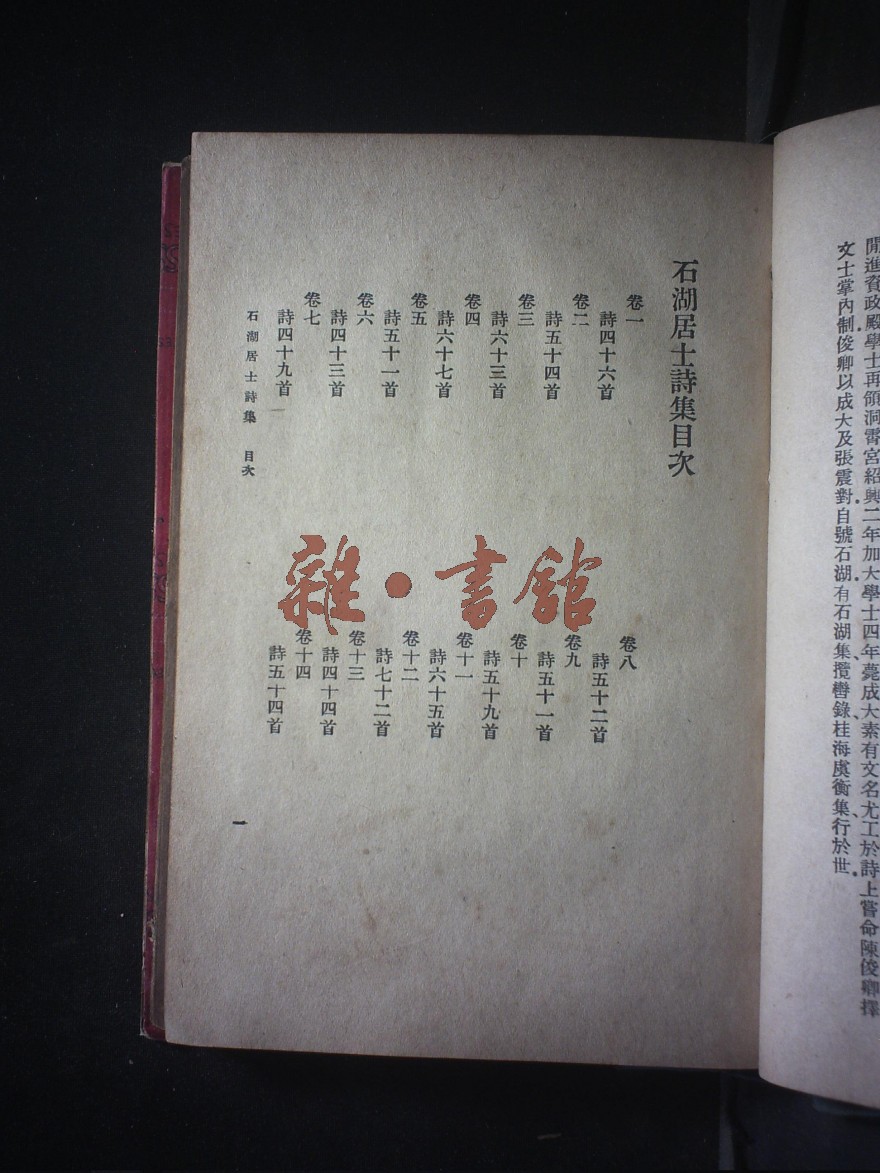 開進資政殿學士再領洞霄宮紹興二年加大學士四年薨成大素有文名尤工於詩上嘗命陳俊卿擇
文士掌內制俊卿以成大及張震對自號石湖有石湖集攬轡錄桂海虞衡集行於世
石湖居士詩集目次
卷一
詩四十六首
卷二
詩五十四首
卷三
詩六十三首
卷四
詩六十七首
卷五
詩五十一首
卷六
詩四十三首
卷七
詩四十九首
卷八
詩五十二首
卷九
詩五十一首
卷十
詩五十九首
卷十一
詩六十五首
卷十二
詩七十二首
卷十三
詩四十四首
卷十四
詩五十四首
石湖居士詩集 目次
一
雜·書館